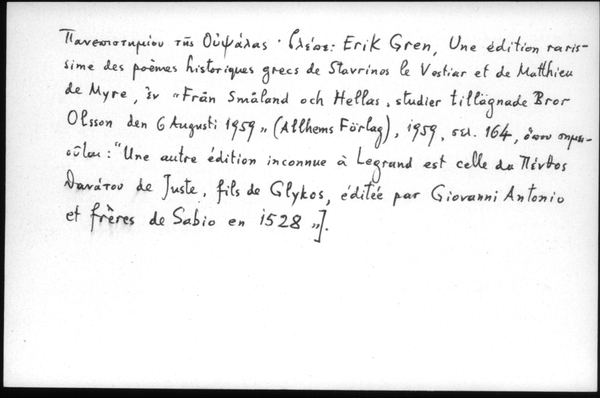 Πανεπιστημίου τῆς Οὐψάλας · βλέπε: Erik Gren, Une édition raris-
sime des poèmes historiques grecs de Stavrinos le Vestiar et de Matthieu
de Myre, ἐν "Från Småland och Hellas, studier tillägnade Bror
Olsson den 6 Augusti 1959" (Allhems Förlag), 1959, σελ. 164, ὅπου σημει-
οῦται: "Une autre édition inconnue à Legrand est celle du Πένθος
θανάτου de Juste, fils de Glykos, éditée par Giovanni Antonio
et frères de Sabio en 1528"].